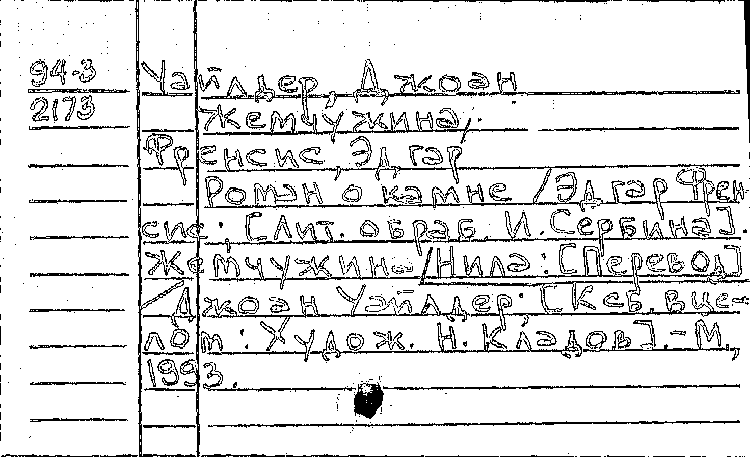 94-3 Уайлдер, Джоан
2173 Жемчужина.
Френсис, Эдгар
Роман о камне / Эдгар Френ-
сис; [Лит. обраб. И. Сербина].
Жемчужина Нила: [Перевод]
/ Джоан Уайлдер; [К сб. в це-
лом: Худож. Н. Кладов]. - М.,
1993.